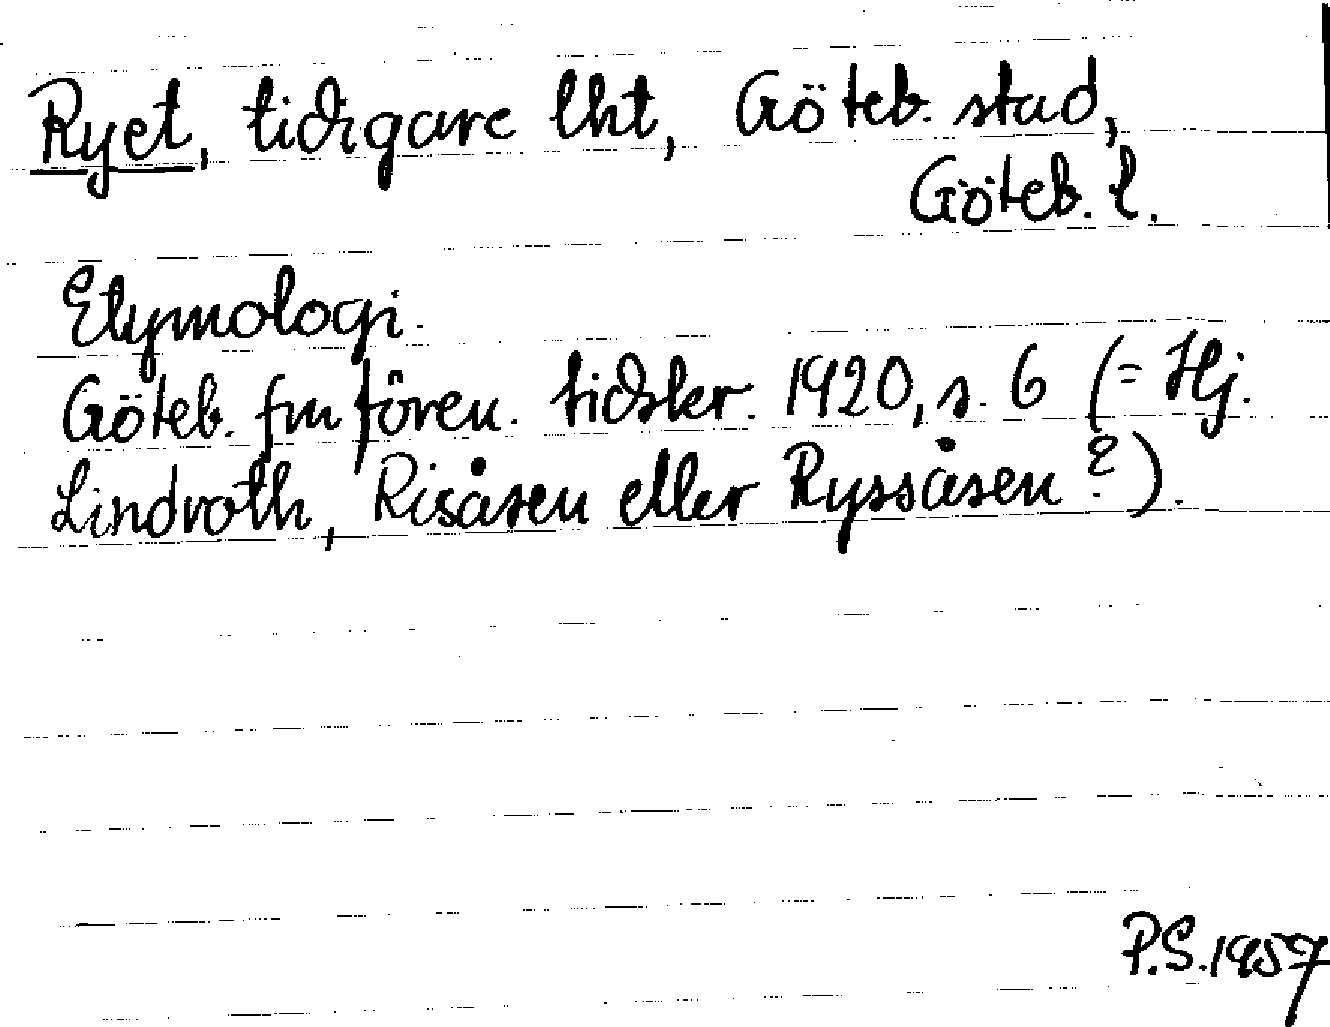 Ryet, tidigare lht, Göteb. stad,
Göteb. l.
Etymologi.
Göteb. fm fören. tidskr. 1920, s. 6 (= Hj.
Lindroth, Risåsen eller Ryssåsen?).
P.S. 1957